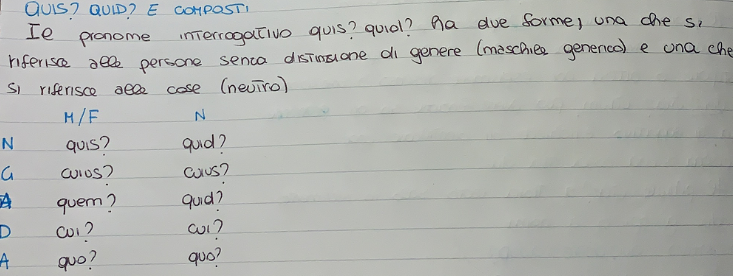 QUIS? QUID? E COMPOSTI
Il pronome interrogativo quis? quid? ha due forme, una che si
riferisce alle persone senza distinzione di genere (maschile generico) e una che
si riferisce alle cose (neutro)
M/F N
N quis? quid?
G cuius? cuius?
A quem? quid?
D cui? cui?
A quo? quo?